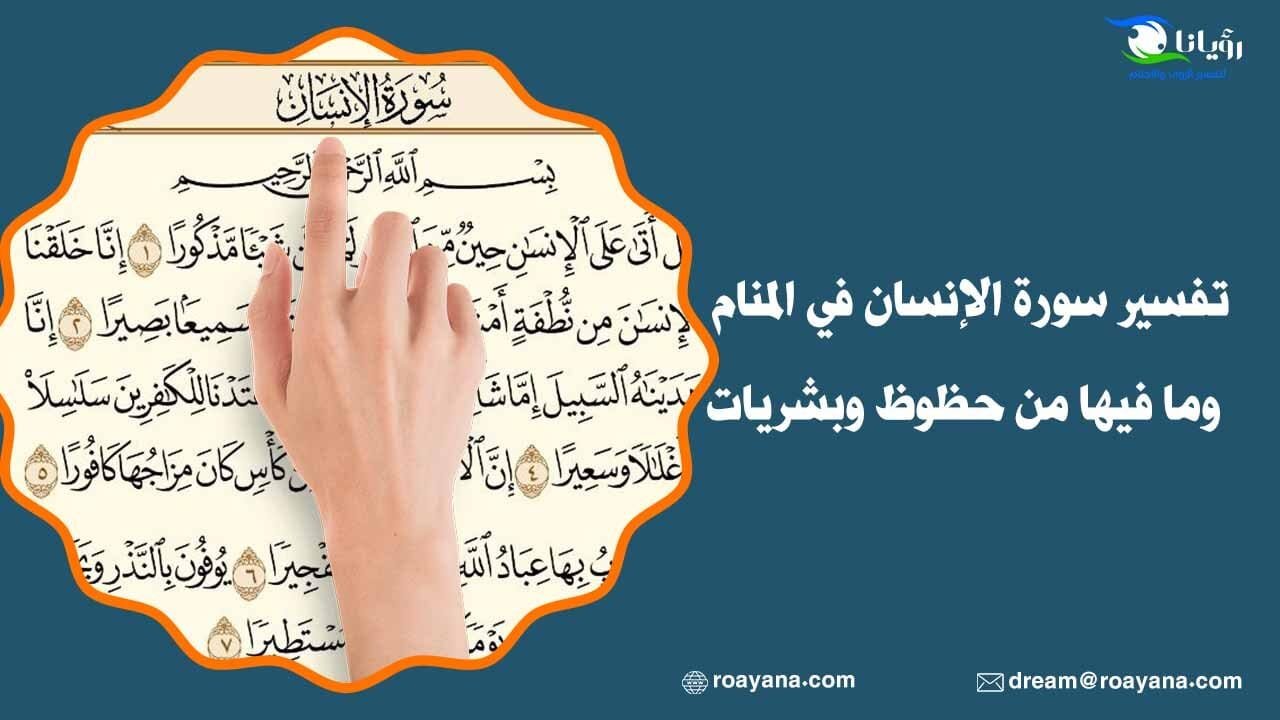 رؤيانا
لتفسير الرؤى والاحلام
تفسير سورة الإنسان في المنام
وما فيها من حظوظ وبشريات
سُورَةُ الإِنسَانِ
بِسْمِ ٱللَّهِ ٱلرَّحْمَٰنِ ٱلرَّحِيمِ
أَتَىٰ عَلَى ٱلْإِنسَٰنِ حِينٌ شَيْـًٔا مَّذْكُورًا ١ إِنَّا خَلَقْنَا
مِن نُّطْفَةٍ سَمِيعًۢا بَصِيرًا ٢ إِنَّا
ٱلسَّبِيلَ إِمَّا لِلْكَٰفِرِينَ سَلَٰسِلَا۟
وَسَعِيرًا ٤ إِنَّ كَأْسٍ كَانَ مِزَاجُهَا كَافُورًا ٥
بِهَا عِبَادُ ٱللَّهِ ٦ يُوفُونَ بِٱلنَّذْرِ
٧
roayana.com
dream@roayana.com